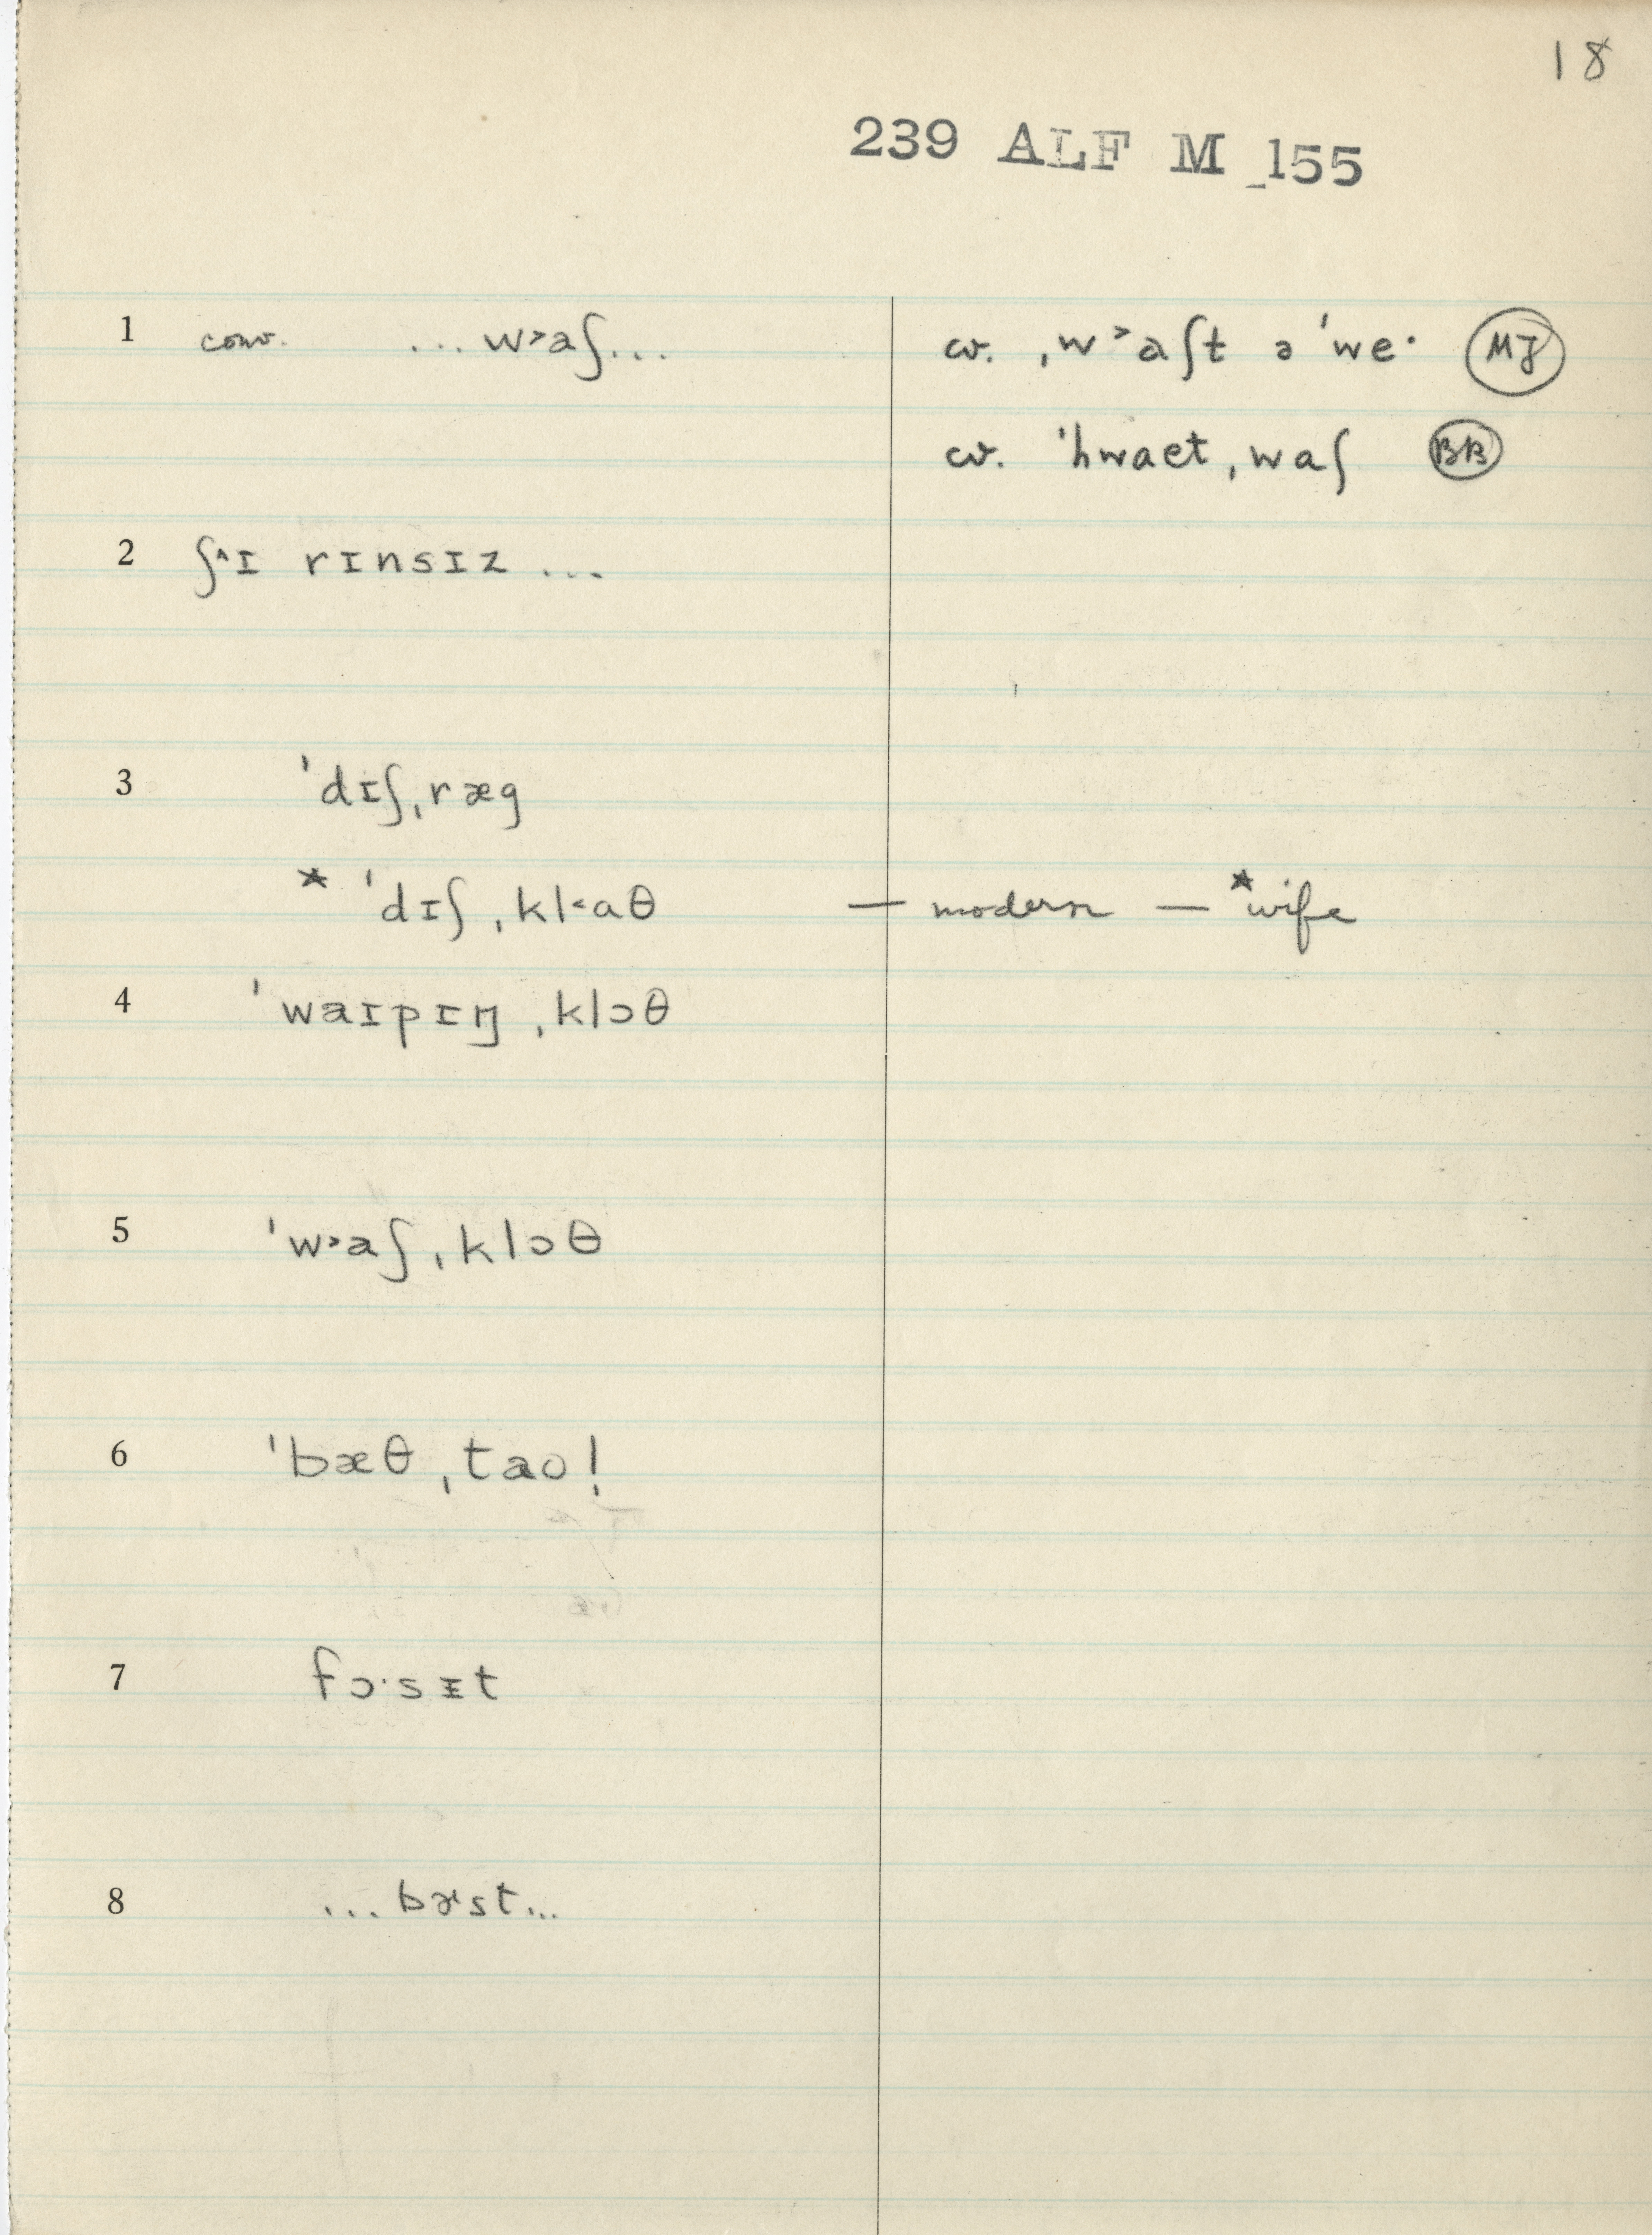 18
239 ALF M 155
1 conv. ... w˃aʃ... cv. ˌw˃aʃt ə ˈwe· MJ
cv. ˈhwaet ˌwaʃ BB
2 ʃ˄ɪ rɪnsɪz ...
3 ˈdɪʃˌræg
* ˈdɪʃˌkl˂aθ — modern — *wife
4 ˈwaɪpɪŋ ˌklɔθ
5 ˈw˃aʃˌklɔθ
6 ˈbæθˌtaʊ!
7 fɔ·sɪt
8 ...bɚst...